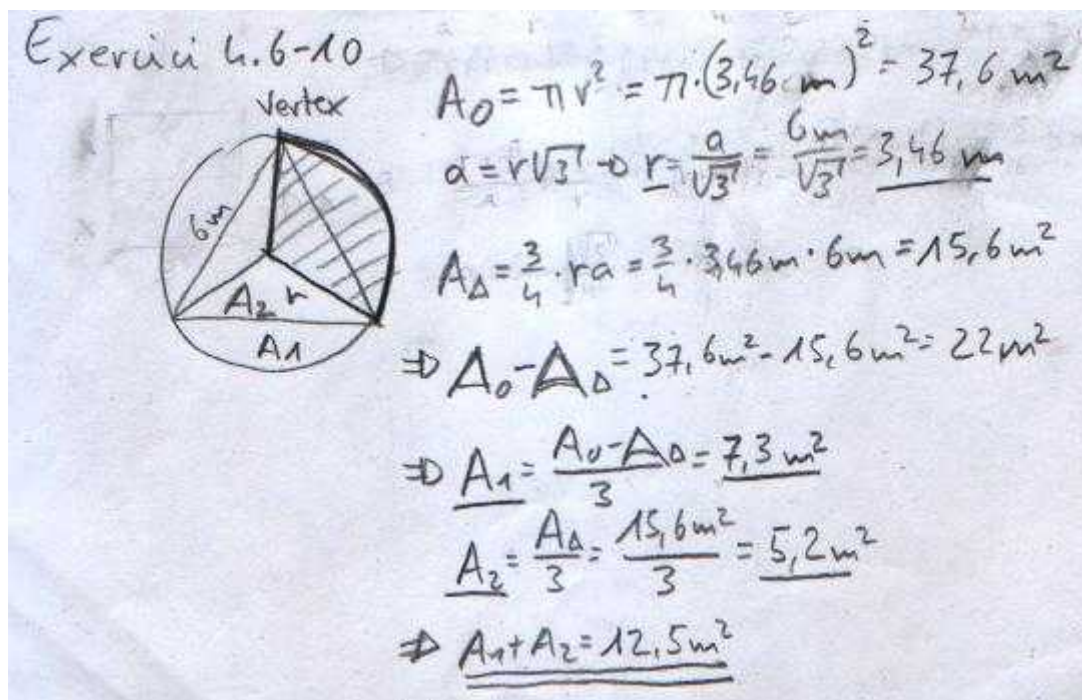 Exercici 4.6-10
Vertex
6m
A2 r
A1
A0 = πr² = π·(3,46 m)² = 37,6 m²
a = r√3 → r = a/√3 = 6m/√3 = 3,46 m
A△ = 3/4 · ra = 3/4 · 3,46m · 6m = 15,6m²
⇒ A0 - A△ = 37,6m² - 15,6m² = 22m²
⇒ A1 = A0-A△/3 = 7,3 m²
A2 = A△/3 = 15,6m²/3 = 5,2m²
⇒ A1+A2 = 12,5m²